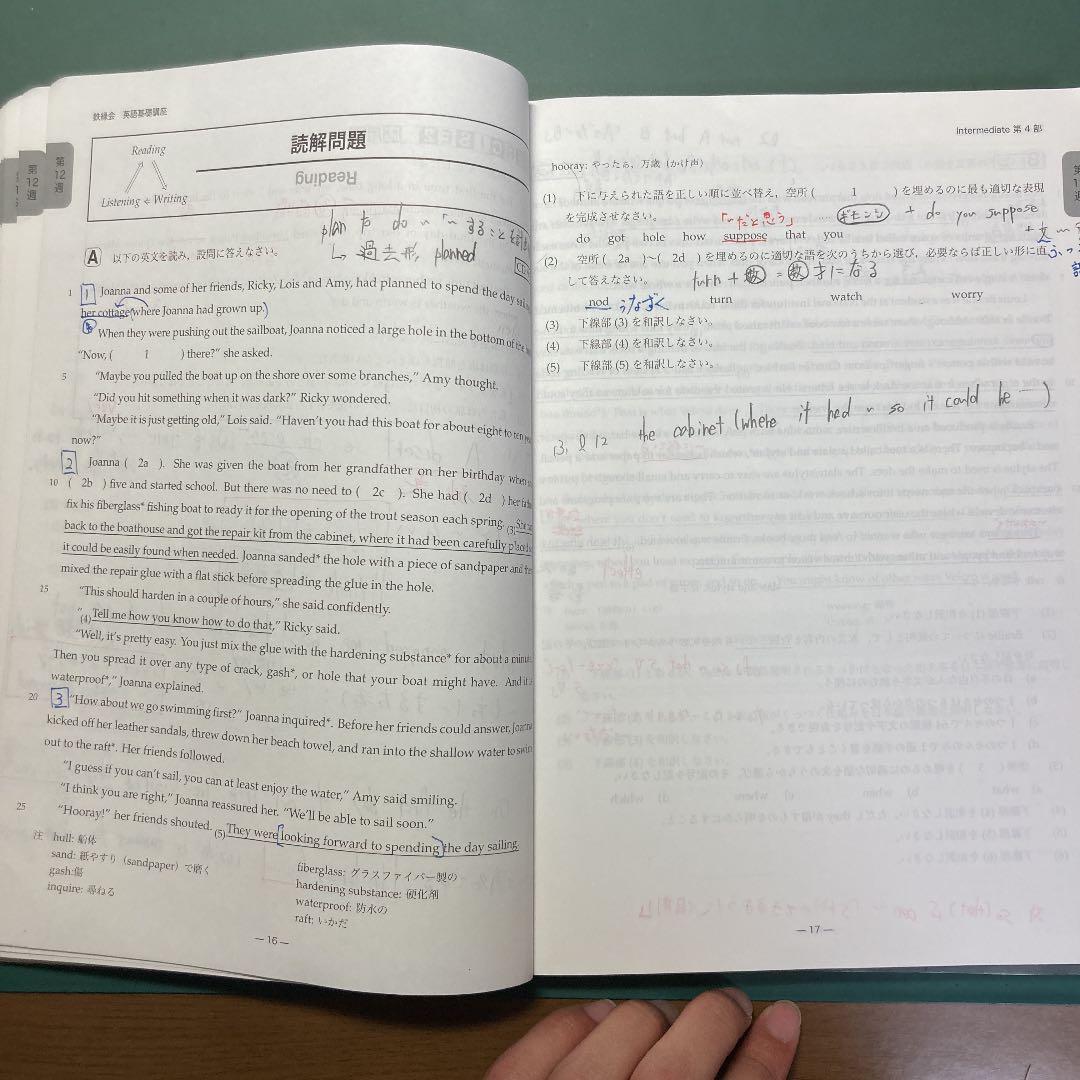 鉄緑会 英語基礎講座
第12週
第12週
Reading
Listening Writing
読解問題
plan to do ~ 「~すること
↳ 過去形, planned
A 以下の英文を読み, 設問に答えなさい。
1 1 Joanna and some of her friends, Ricky, Lois and Amy, had planned to spend the day
her cottage (where Joanna had grown up.)
When they were pushing out the sailboat, Joanna noticed a large hole in the bottom of the
“Now, ( 1 ) there?” she asked.
5 “Maybe you pulled the boat up on the shore over some branches,” Amy thought.
“Did you hit something when it was dark?” Ricky wondered.
“Maybe it is just getting old,” Lois said. “Haven't you had this boat for about eight to ten
now?”
2 Joanna ( 2a ). She was given the boat from her grandfather on her birthday when
10 ( 2b ) five and started school. But there was no need to ( 2c ). She had ( 2d ) her
fix his fiberglass* fishing boat to ready it for the opening of the trout season each spring. (3)
back to the boathouse and got the repair kit from the cabinet, where it had been carefully
it could be easily found when needed. Joanna sanded* the hole with a piece of sandpaper and
mixed the repair glue with a flat stick before spreading the glue in the hole.
15 “This should harden in a couple of hours,” she said confidently.
“(4)Tell me how you know how to do that,” Ricky said.
“Well, it's pretty easy. You just mix the glue with the hardening substance* for about a
Then you spread it over any type of crack, gash*, or hole that your boat might have. And
waterproof*,” Joanna explained.
20 3 “How about we go swimming first?” Joanna inquired*. Before her friends could answer,
kicked off her leather sandals, threw down her beach towel, and ran into the shallow water to
out to the raft*. Her friends followed.
“I guess if you can't sail, you can at least enjoy the water,” Amy said smiling.
“I think you are right,” Joanna reassured her. “We'll be able to sail soon.”
25 “Hooray!” her friends shouted. (5)They were looking forward to spending the day sailing.
注 hull: 船体
sand: 紙やすり（sandpaper）で磨く
gash:傷
inquire: 尋ねる
fiberglass: グラスファイバー製の
hardening substance: 硬化剤
waterproof: 防水の
raft: いかだ
— 16 —
Intermediate 第4部
hooray: やったぁ, 万歳（かけ声）
(1) 下に与えられた語を正しい順に並べ替え, 空所( 1 )を埋めるのに最も適切な表現
を完成させなさい。
「~だと思う」
ギモンシ + do you suppose
do got hole how suppose that you
+ 文
(2) 空所( 2a )~( 2d )を埋めるのに適切な語を次のうちから選び, 必要ならば正しい形に直
して答えなさい。
turn + 数 = 数才になる
nod うなずく turn watch worry
(3) 下線部(3)を和訳しなさい。
(4) 下線部(4)を和訳しなさい。
(5) 下線部(5)を和訳しなさい。
(3. l 12 the cabinet (where it had ~ so it could be )
— 17 —